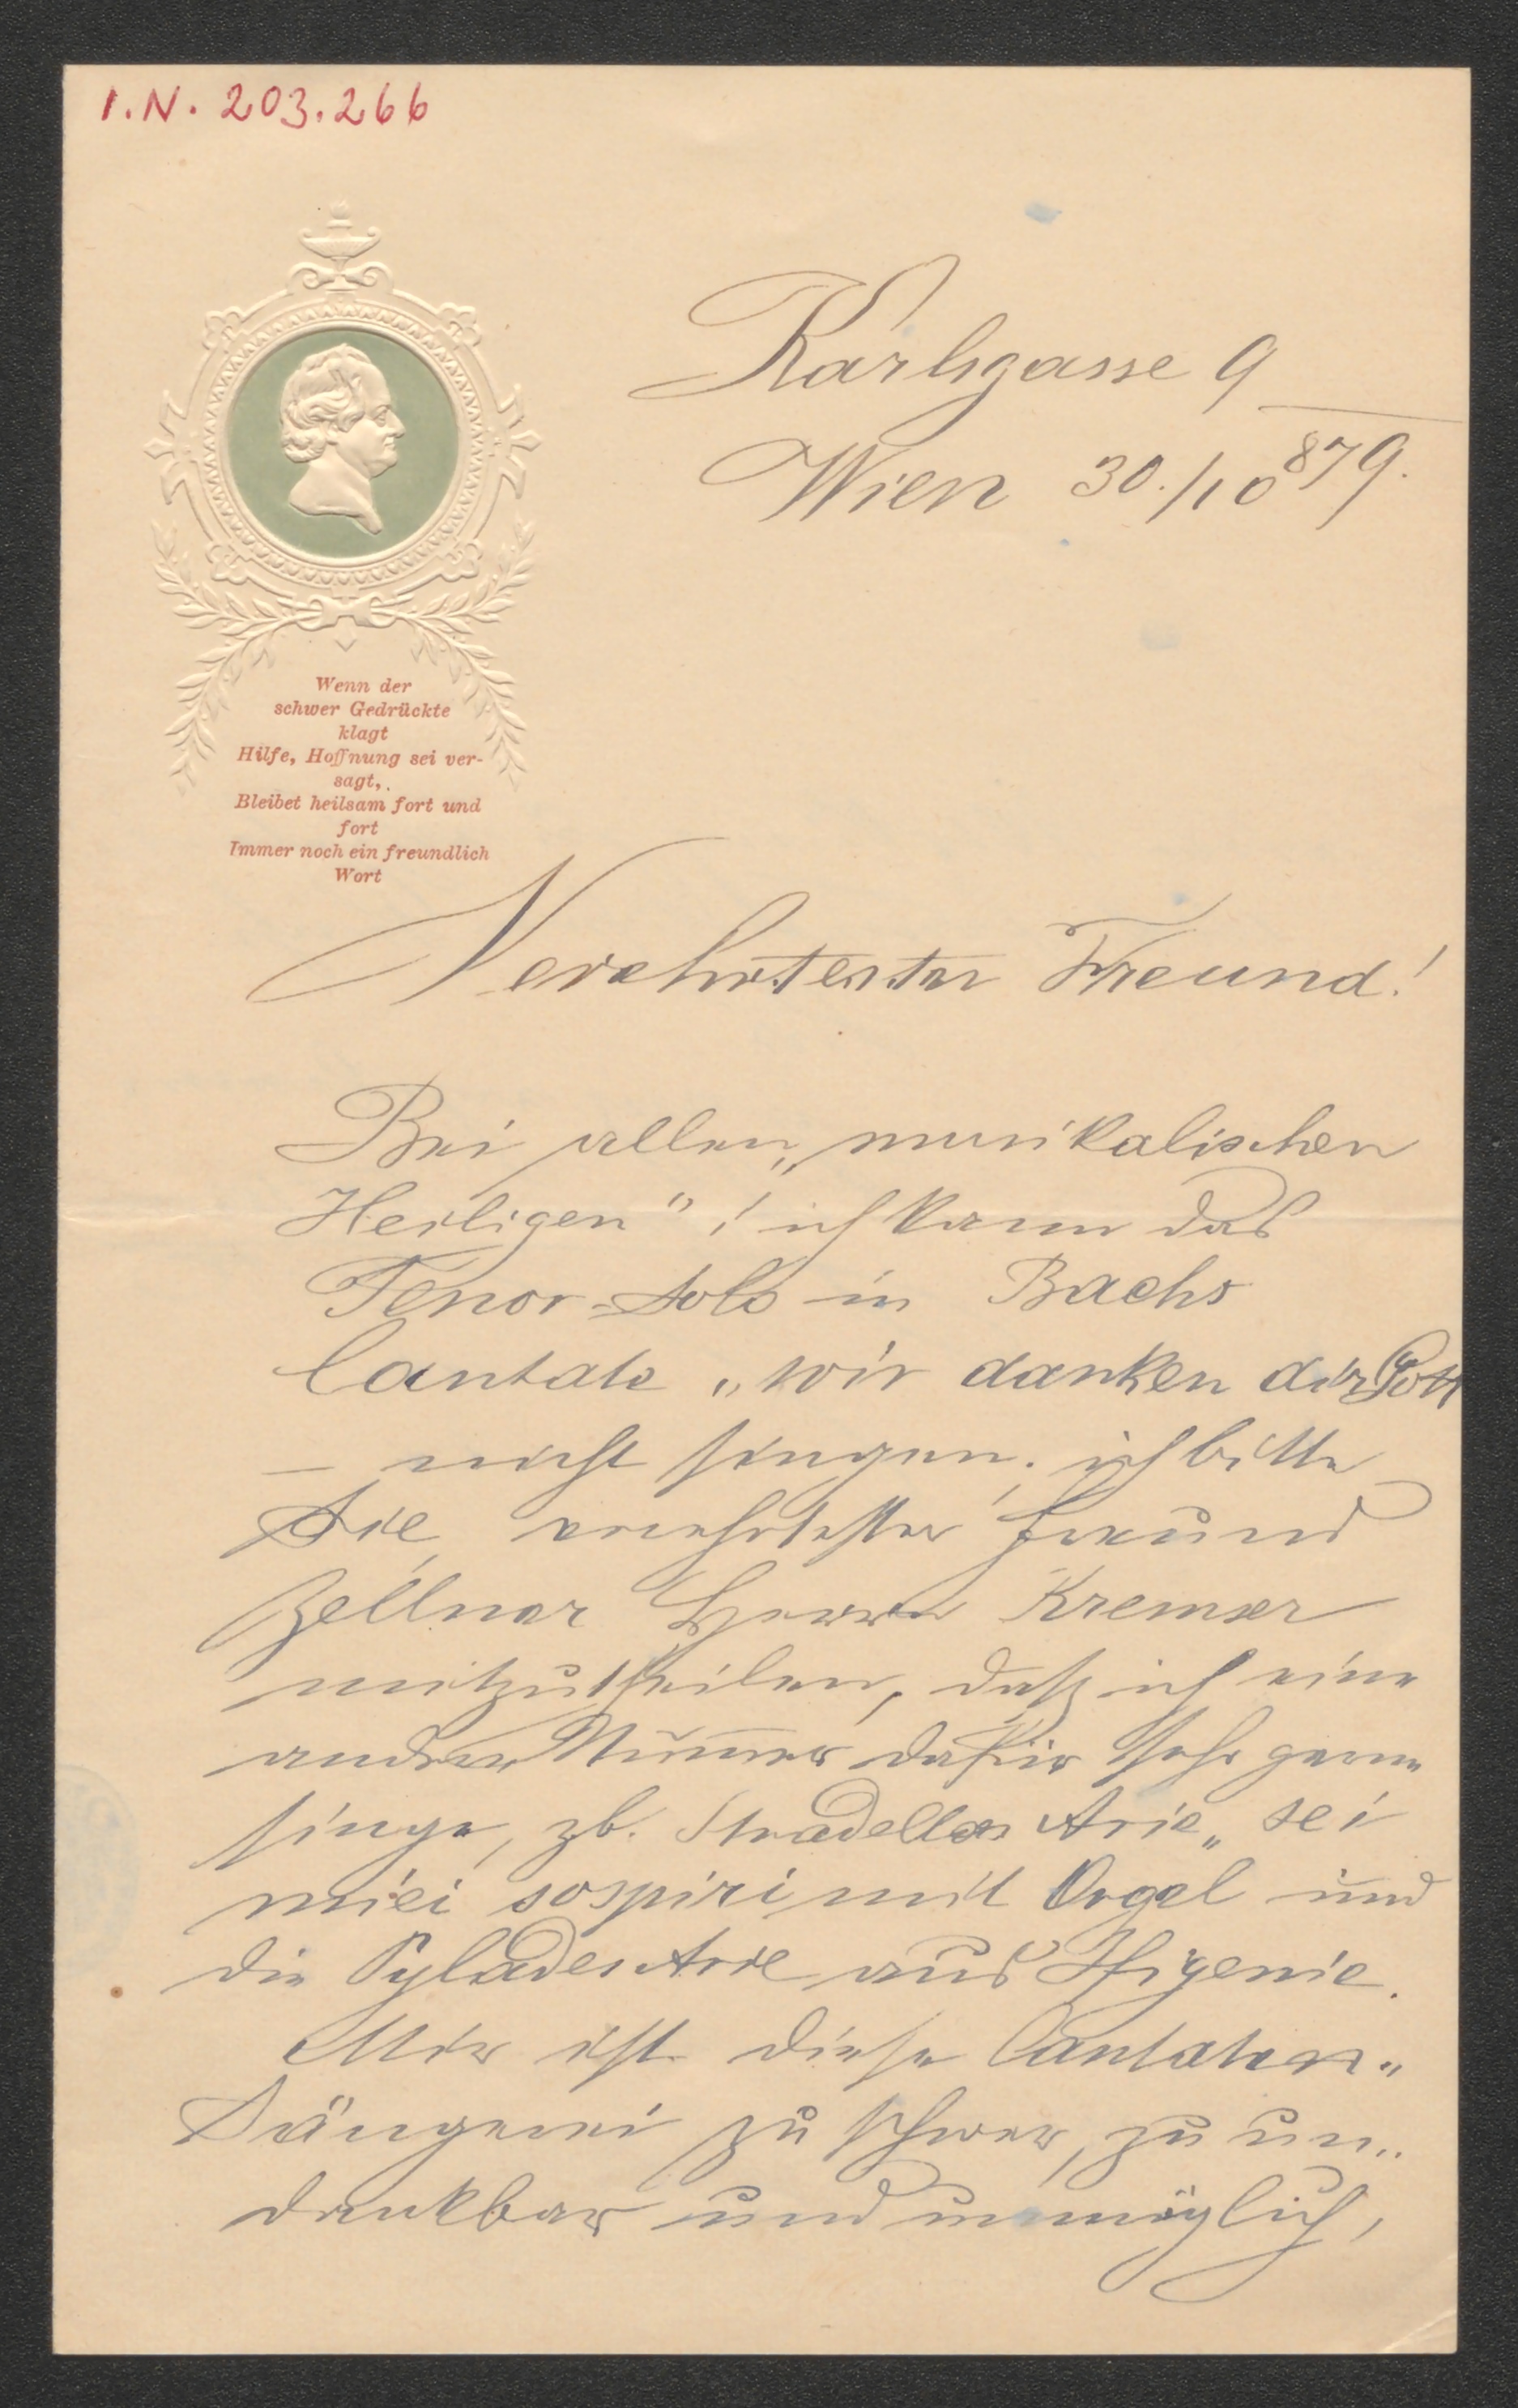 I.N. 203.266
Karlsgasse 9
Wien 30./10 879.
Wenn der
schwer Gedrückte
klagt
Hilfe, Hoffnung sei ver-
sagt,
Bleibet heilsam fort und
fort
Immer noch ein freundlich
Wort
Verehrtester Freund!
Bei allen „musikalischen
Heiligen"! ich kann das
Tenor-Solo in Bachs
Cantate „wir danken dir Gott
– nicht singen; ich bitte
Sie verehrtester Freund
Zellner Herrn Kremser
mitzutheilen, daß ich eine
andre Nummer dafür sehr gerne
singe, zb. Stradellas Arie „sei
miei sospiri mit Orgel und
die Pylades Arie aus Ifigenie.
Mir ist diese Cantaten„
Sängerei zu schwer, zu un„
dankbar und unmöglich,